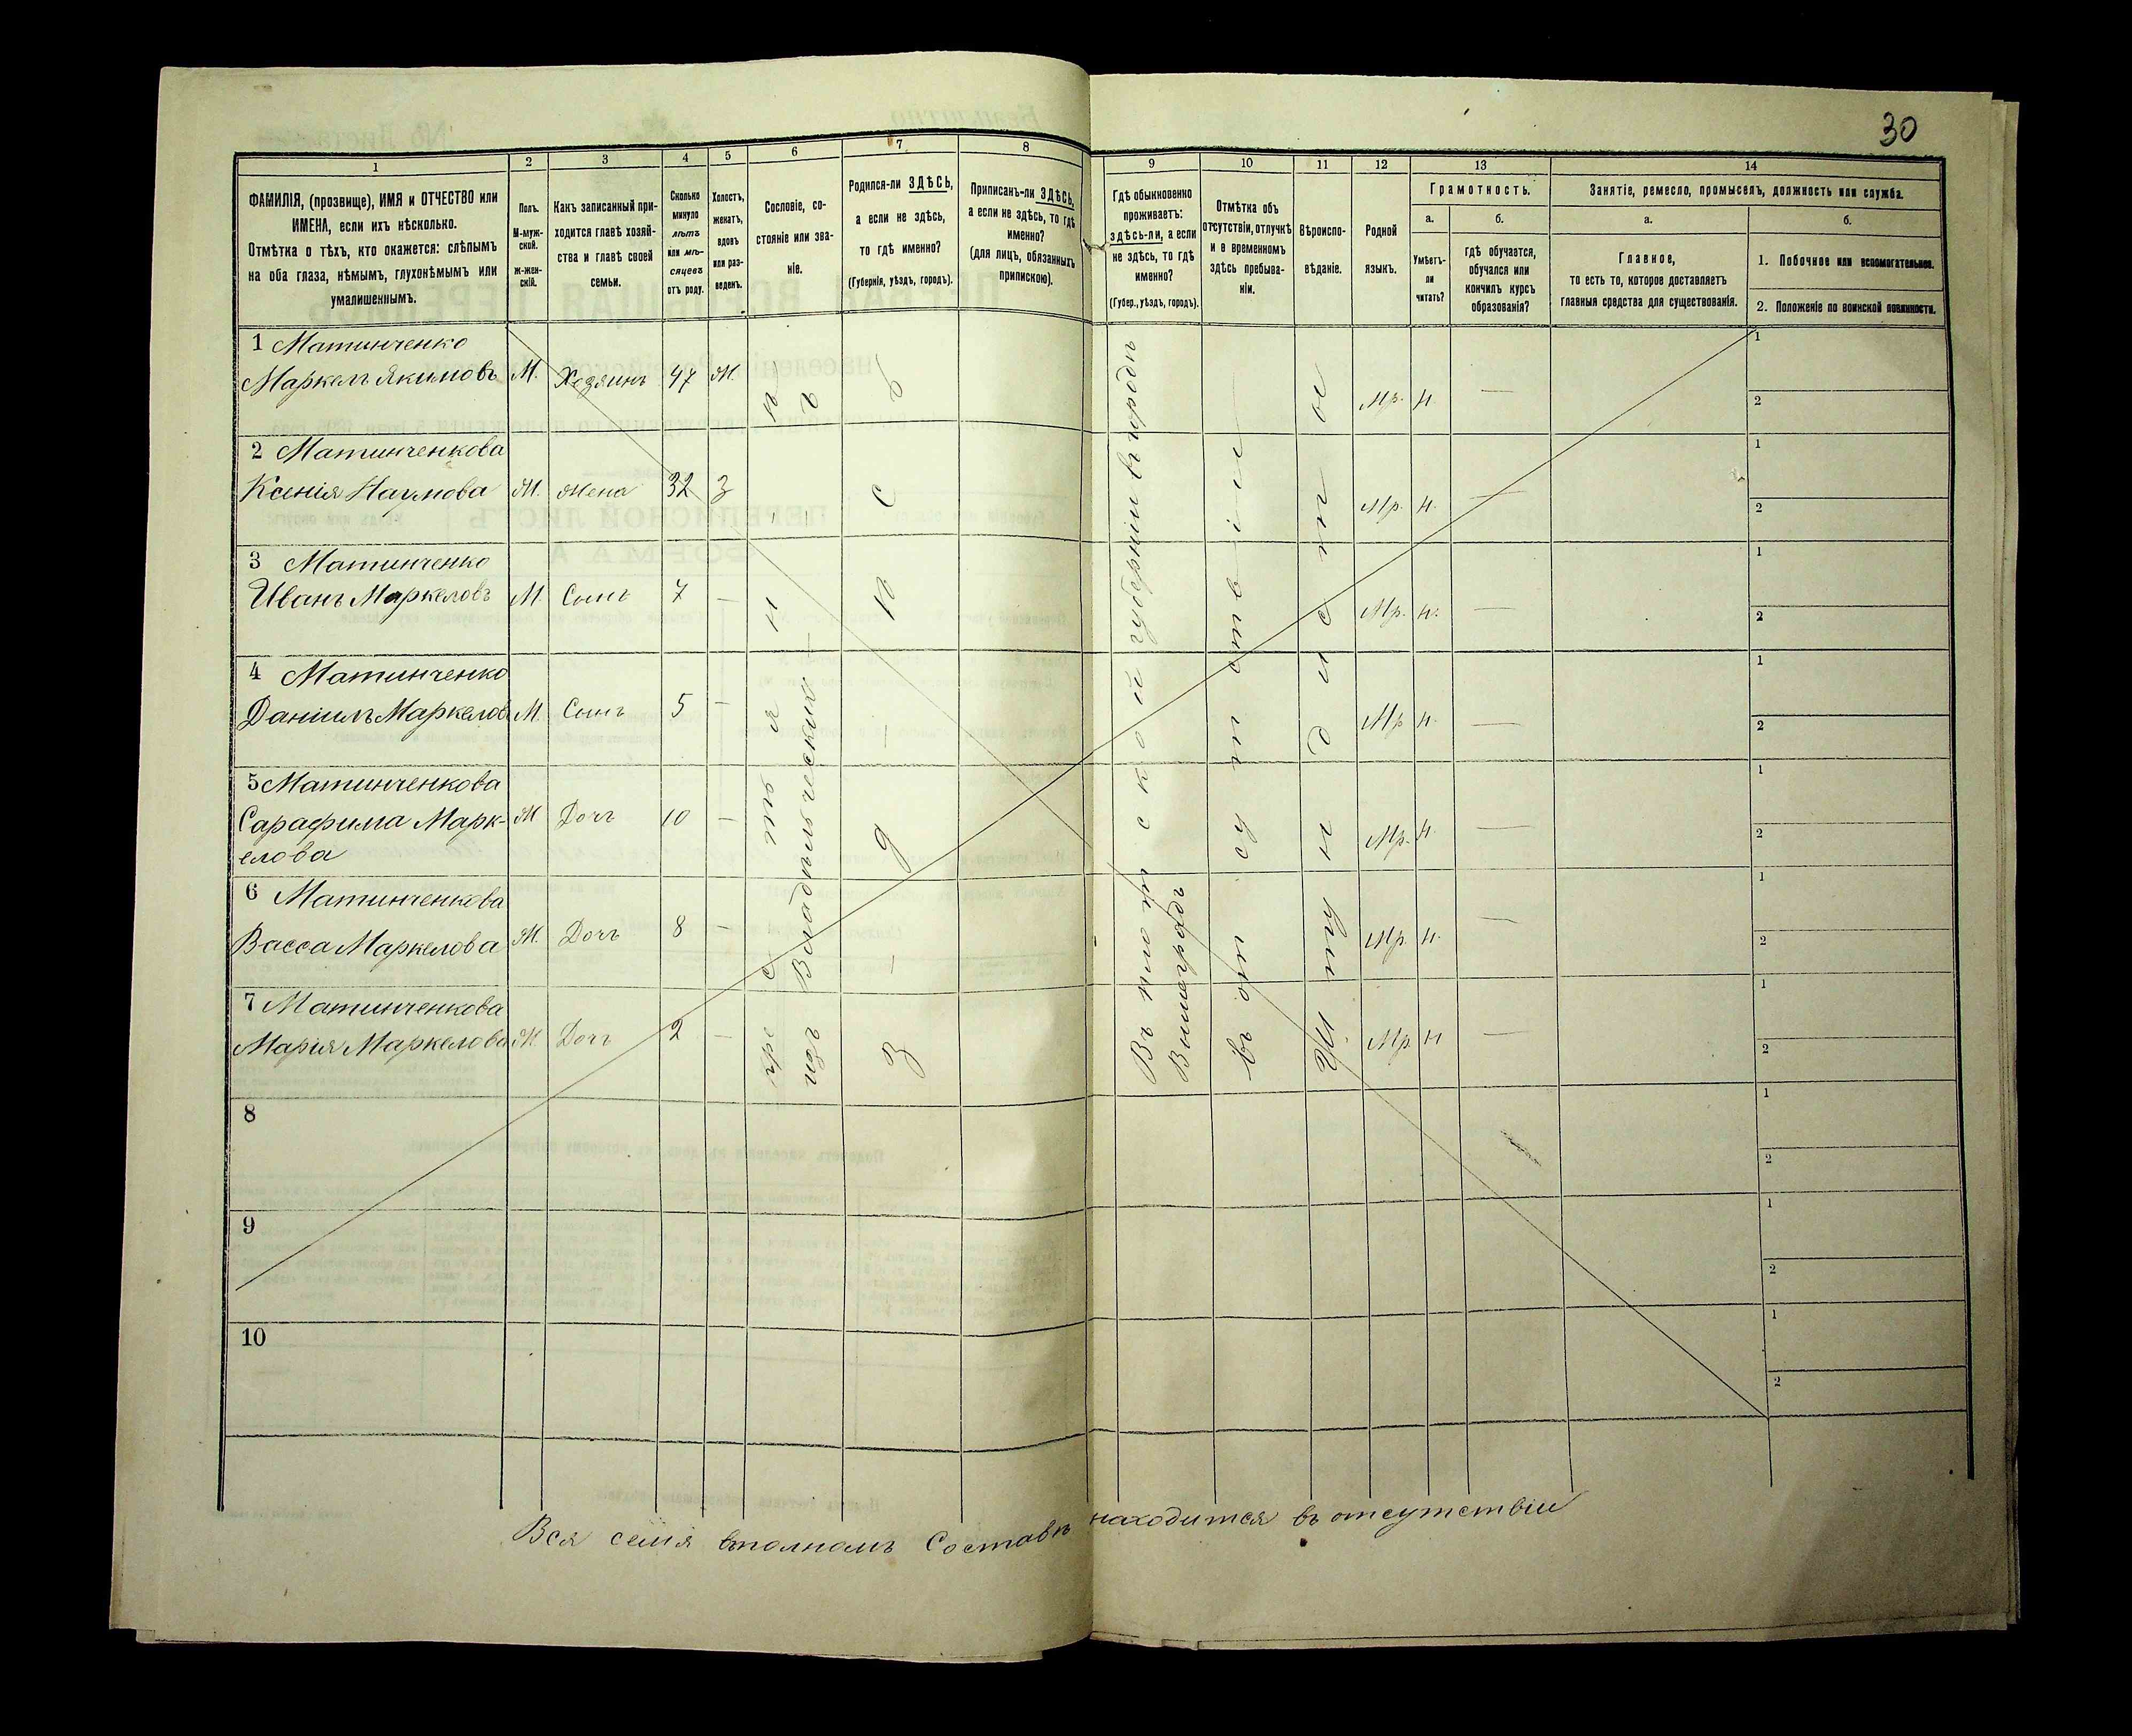 30
1
2
3
4
5
6
7
8
9
10
11
12
13
14
ФАМИЛІЯ, (прозвище), ИМЯ и ОТЧЕСТВО или
ИМЕНА, если ихъ нѣсколько.
Отмѣтка о тѣхъ, кто окажется: слѣпымъ
на оба глаза, нѣмымъ, глухонѣмымъ или
умалишеннымъ.
Полъ.
М-муж-
ской.
ж-жен-
скій.
Какъ записанный при-
ходится главѣ хозяй-
ства и главѣ своей
семьи.
Сколько
минуло
лѣтъ
или мѣ-
сяцевъ
отъ роду.
Холостъ,
женатъ,
вдовъ
или раз-
веденъ.
Сословіе, со-
стояніе или зва-
ніе.
Родился-ли ЗДѢСЬ,
а если не здѣсь,
то гдѣ именно?
(Губернія, уѣздъ, городъ).
Приписанъ-ли ЗДѢСЬ,
а если не здѣсь, то гдѣ
именно?
(для лицъ, обязанныхъ
припискою).
Гдѣ обыкновенно
проживаетъ:
здѣсь-ли, а если
не здѣсь, то гдѣ
именно?
(Губер., уѣздъ, городъ).
Отмѣтка объ
отсутствіи, отлучкѣ
и в временномъ
здѣсь пребыва-
ніи.
Вѣроиспо-
вѣданіе.
Родной
языкъ.
Грамотность.
а.
Умѣетъ-
ли
читать?
б.
гдѣ обучается,
обучался или
кончилъ курсъ
образованія?
Занятіе, ремесло, промыселъ, должность или служба.
а.
Главное,
то есть то, которое доставляетъ
главныя средства для существованія.
б.
1. Побочное или вспомогательное.
2. Положеніе по воинской повинности.
1 Матинченко
Маркелъ Якимовъ М. Хозяинъ 47 М. Мр. Н. — 1 2
2 Матинченкова
Ксенія Наумова М. Жена 32 З Мр. Н. — 1 2
3 Матинченко
Иванъ Маркеловъ М. Сынъ 7 — Мр. Н. — 1 2
4 Матинченко
Даніилъ Маркеловъ М. Сынъ 5 — Мр Н. — 1 2
5 Матинченкова
Сарафима Марк- М Дочъ 10 — Мр. Н. — 1 2
елова
6 Матинченкова
Васса Маркелова М. Дочъ 8 — Мр. Н. — 1 2
7 Матинченкова
Марія Маркелова М Дочъ 2 — Мр. Н — 1 2
8 1 2
9 1 2
10 1 2
изъ Владѣльческихъ
здѣсь
губерніи въ городѣ
Вишеградъ
въ отсутствіи
Вся семія вполномъ Составѣ находится въ отсутствіи